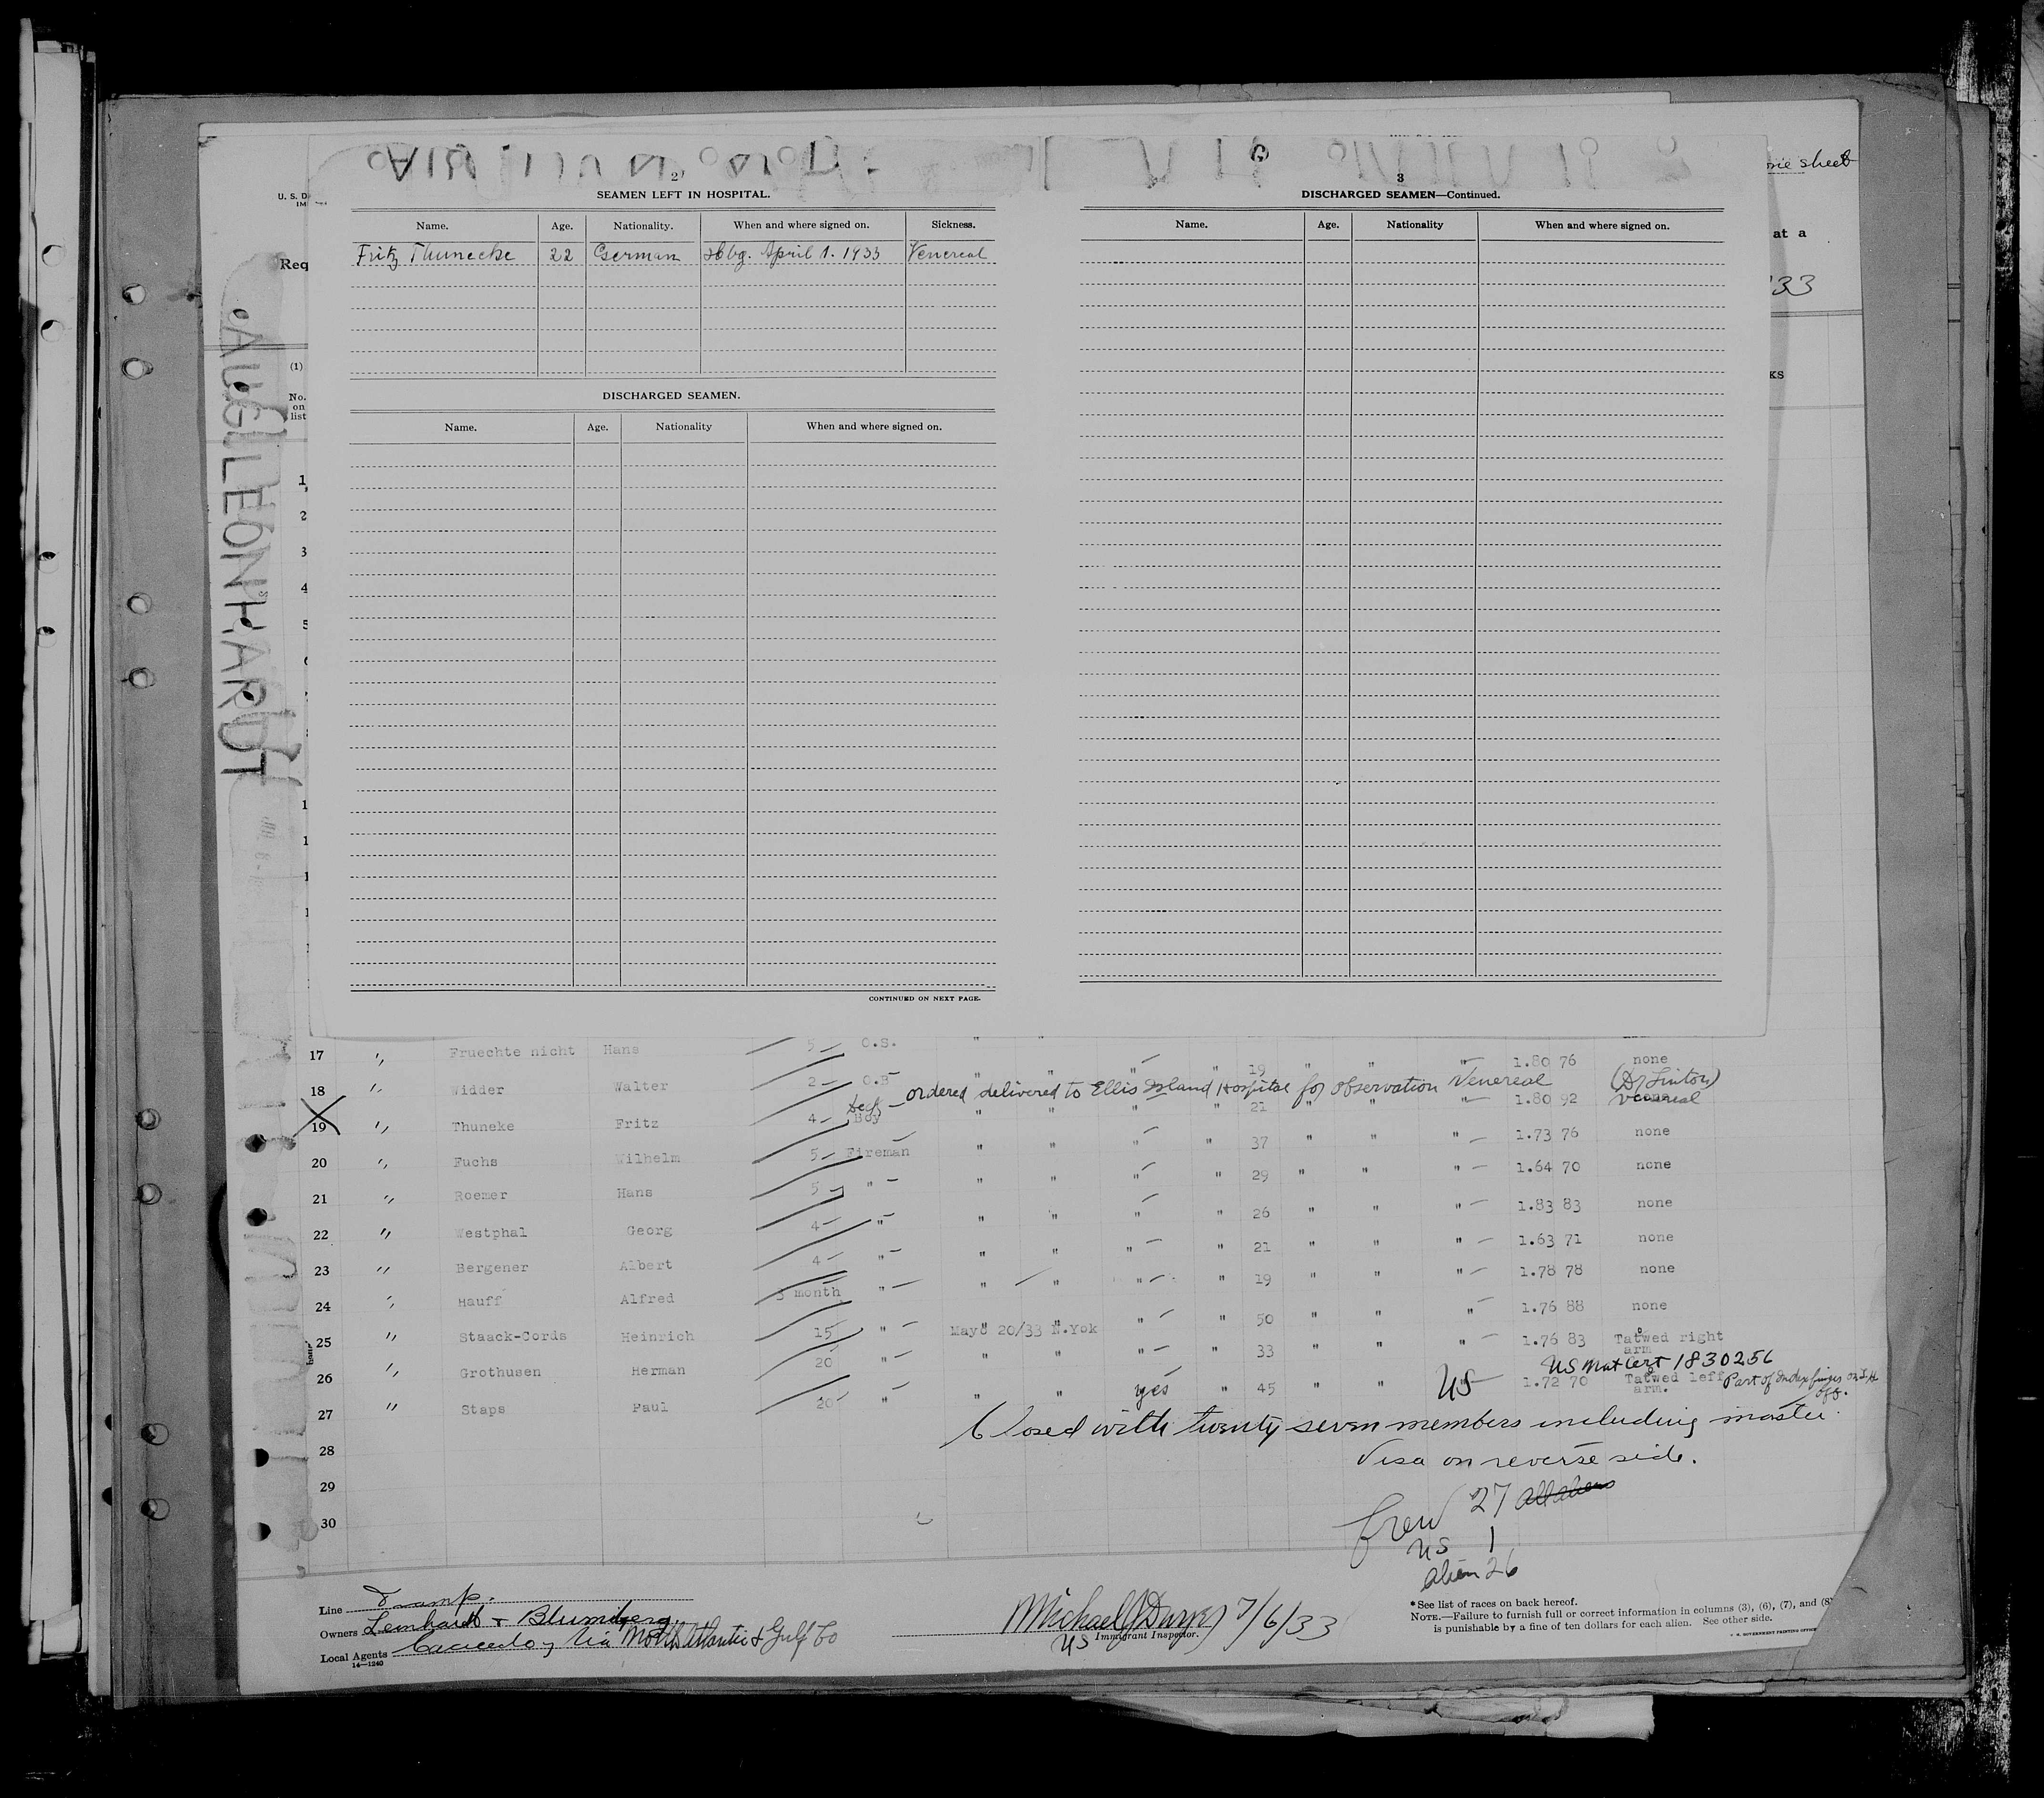 2
SEAMEN LEFT IN HOSPITAL.
Name. Age. Nationality. When and where signed on. Sickness.
Fritz Thunecke 22 German Hbg. April 1. 1933 Venereal
DISCHARGED SEAMEN.
Name. Age. Nationality When and where signed on.
CONTINUED ON NEXT PAGE.
3
DISCHARGED SEAMEN—Continued.
Name. Age. Nationality When and where signed on.
sheet
at a
33
KS
U. S. D
IM
Req
(1)
No.
on
list
1
2
3
4
AUG LEONHARDT
17 " Fruechte nicht Hans 5 O.S. " " " 19 " " " 1.80 76 none
18 " Widder Walter 2 O.S
ordered delivered to Ellis Island Hospital for observation Venereal
19 " Thuneke Fritz 4 Boy " " " " 21 " " " 1.80 92 venereal
20 " Fuchs Wilhelm 5 Fireman " " " " 37 " " " 1.73 76 none
21 " Roemer Hans 5 " " " " " 29 " " " 1.64 70 none
22 " Westphal Georg 4 " " " " " 26 " " " 1.83 83 none
23 " Bergener Albert 4 " " " " " 21 " " " 1.63 71 none
24 " Hauff Alfred 3 month " " " " " 19 " " " 1.78 78 none
25 " Staack-Cords Heinrich 15 " May 20/33 N.Yok " " 50 " " " 1.76 88 none
26 " Grothusen Herman 20 " " " " " 33 " " " 1.76 83 Tatwed right arm
US Nat Cert 1830256
27 " Staps Paul 20 " " " yes " 45 " " US 1.72 70 Tatwed left arm. Part of Index finger on L H off.
28
29
30
Closed with twenty seven members including master.
Visa on reverse side.
Crew 27 all aliens
US 1
alien 26
Line Tramp.
Owners Leonhardt & Blumberg
Local Agents via North Atlantic & Gulf Co
14—1240
7/6/33
US Immigrant Inspector.
*See list of races on back hereof.
NOTE.—Failure to furnish full or correct information in columns (3), (6), (7), and (8)
is punishable by a fine of ten dollars for each alien. See other side.
U. S. GOVERNMENT PRINTING OFFICE